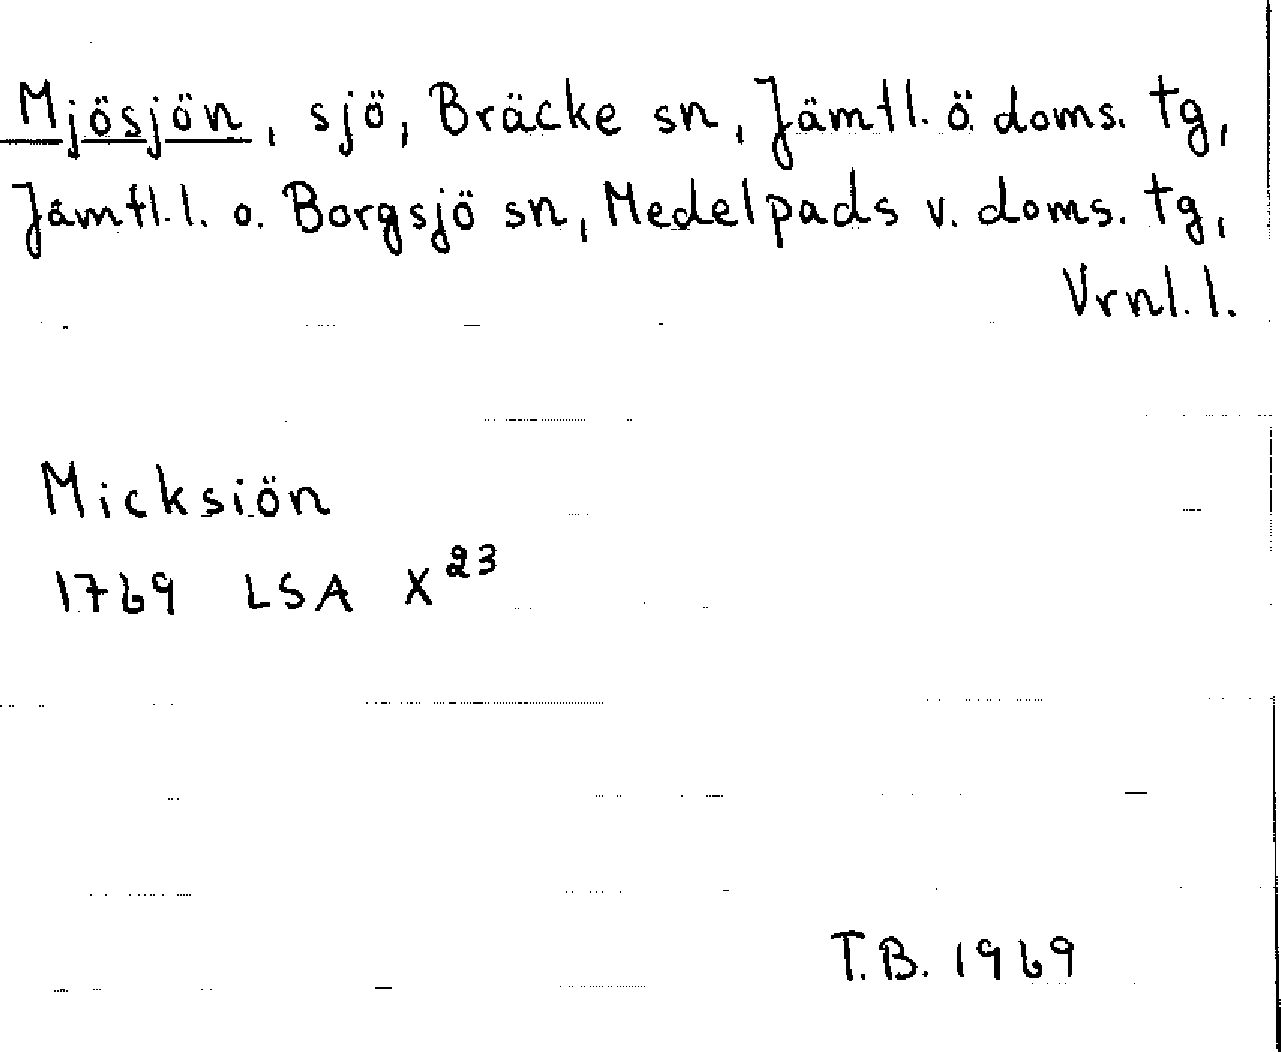 Mjösjön, sjö, Bräcke sn, Jämtl. ö doms. tg,
Jämtl. l. o. Borgsjö sn, Medelpads v. doms. tg,
Vrnl. l.
Micksiön
1769 LSA X23
T.B. 1969